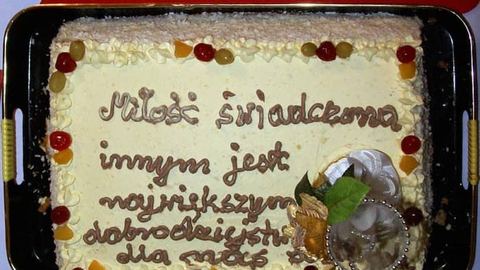 Miłość świadczona
innym jest
największym
dobrodziejstw
dla nas